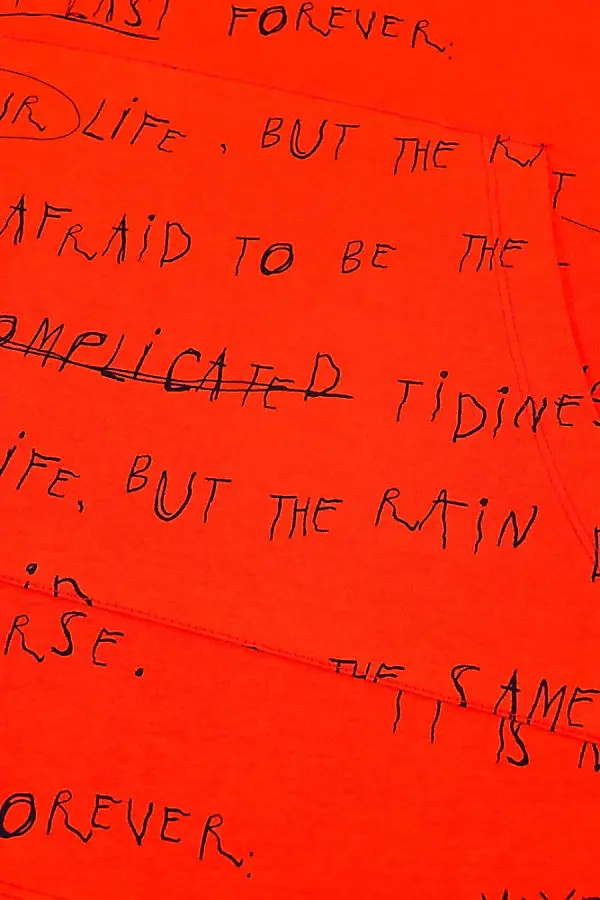 LAST FOREVER.
LiFE, BUT THE
AFRAiD TO BE THE
COMPLiCATED TiDiNES
LiFE, BUT THE RAiN
in
RSE. THE SAME
iT iS
FOREVER.